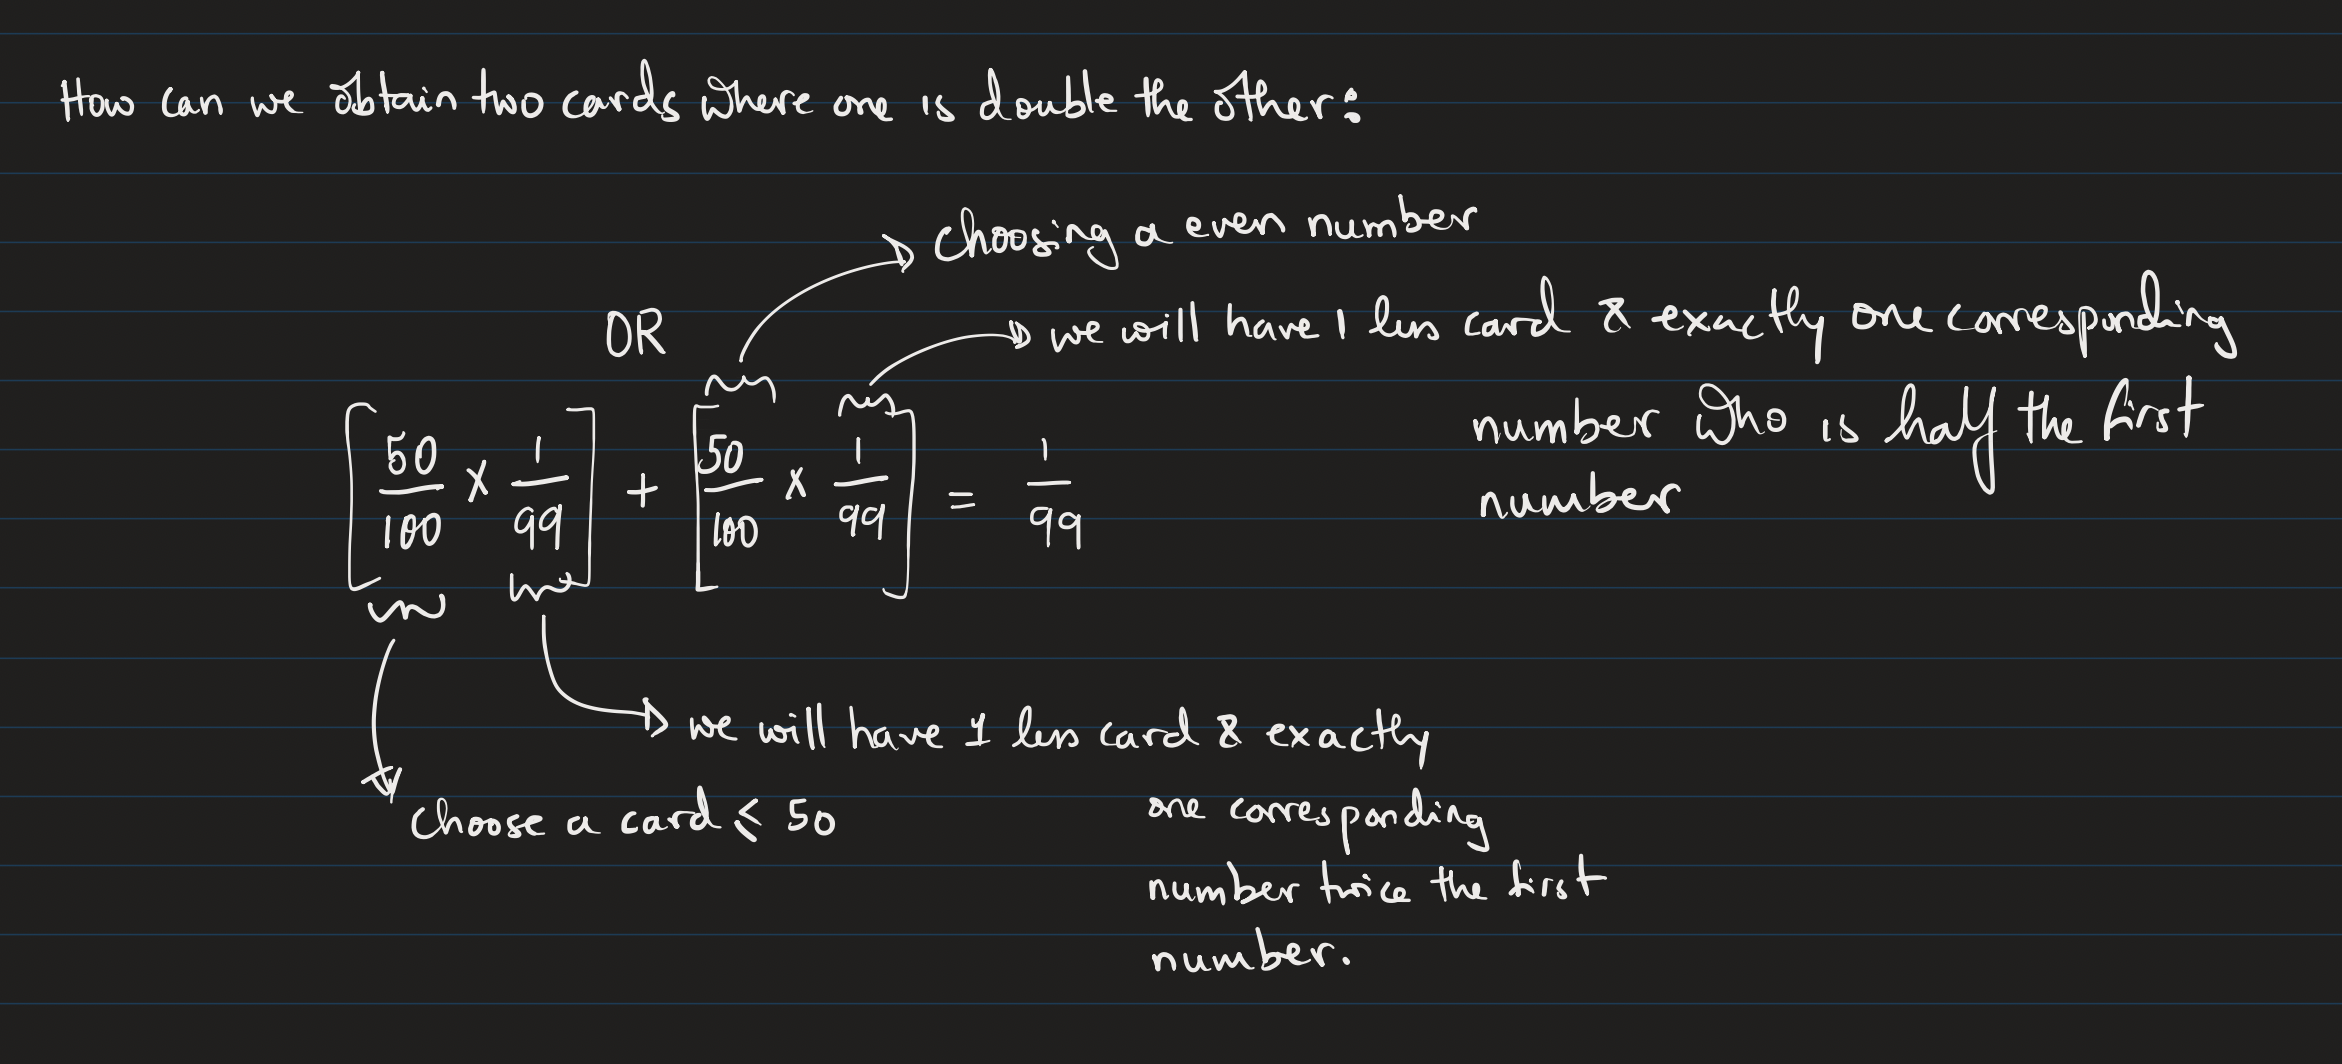 How can we obtain two cards where one is double the other:
choosing a even number
OR
we will have 1 less card & exactly one corresponding
number who is half the first
number
[50/100 × 1/99] + [50/100 × 1/99] = 1/99
we will have 1 less card & exactly
choose a card ≤ 50
one corresponding
number twice the first
number.